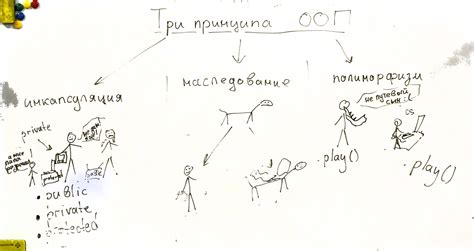 Три принципа ООП
инкапсуляция
наследование
полиморфизм
private
не путёвый
сын :(
.play()
.play()
• public
• private
• protected